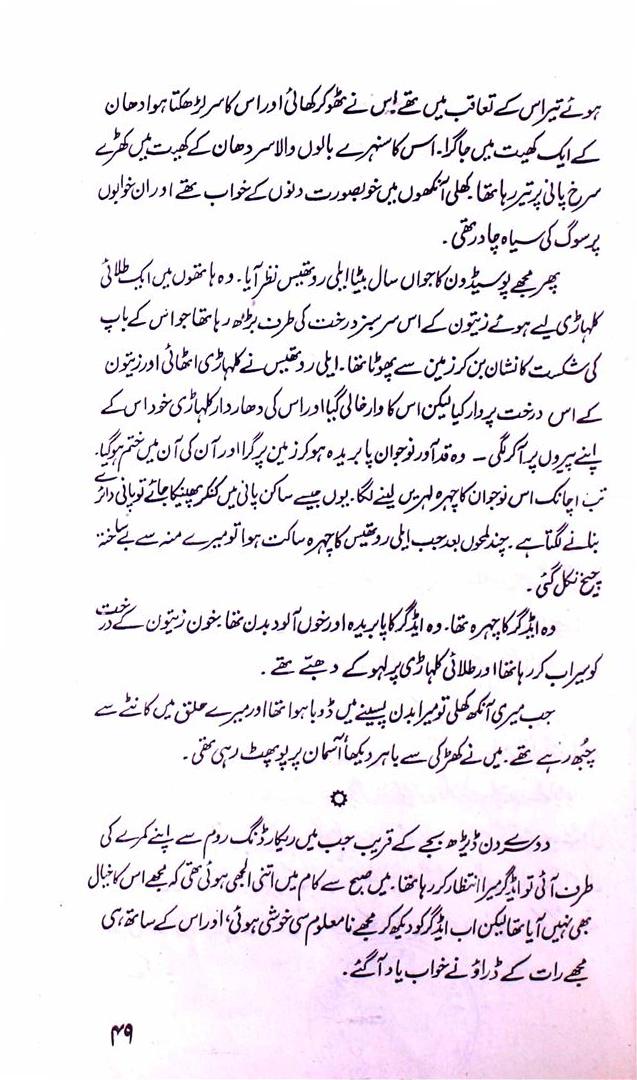 ہوئے تیر اس کے تعاقب میں تھے۔ اس نے ٹھوکر کھائی اور اس کا سر لڑھکتا ہوا دھان
کے ایک کھیت میں جا گرا۔ اس کا سنہرے بالوں والا سر دھان کے کھیت میں کھڑے
سرخ پانی پر تیر رہا تھا۔ کھلی آنکھوں میں خوبصورت دنوں کے خواب تھے اور ان خوابوں
پر سوگ کی سیاہ چادر تھی۔
پھر مجھے پوسیڈون کا جواں سال بیٹا ایلی روتھیس نظر آیا۔ وہ ہاتھوں میں ایک طلائی
کلہاڑی لیے ہوئے زیتون کے اس سرسبز درخت کی طرف بڑھ رہا تھا جو اس کے باپ
کی شکست کا نشان بن کر زمین سے پھوٹا تھا۔ ایلی روتھیس نے کلہاڑی اٹھائی اور زیتون
کے اس درخت پر وار کیا لیکن اس کا وار خالی گیا اور اس کی دھار دار کلہاڑی خود اس کے
اپنے پیروں پر آ کر لگی ۔ وہ قد آور نوجوان پا بریدہ ہو کر زمین پر گرا اور آن کی آن میں ختم ہو گیا۔
تب اچانک اس نوجوان کا چہرہ لہریں لینے لگا۔ یوں جیسے ساکن پانی میں کنکر پھینکا جائے تو پانی دائرے
بنانے لگتا ہے۔ چند لمحوں بعد جب ایلی روتھیس کا چہرہ ساکت ہوا تو میرے منہ سے بے ساختہ
چیخ نکل گئی۔
وہ ایڈگر کا چہرہ تھا۔ وہ ایڈگر کا پا بریدہ اور خوں آلود بدن تھا۔ خون زیتون کے درخت
کو سیراب کر رہا تھا اور طلائی کلہاڑی پر لہو کے دھبے تھے۔
جب میری آنکھ کھلی تو میرا بدن پسینے میں ڈوبا ہوا تھا اور میرے حلق میں کانٹے سے
چبھ رہے تھے۔ میں نے کھڑکی سے باہر دیکھا، آسمان پر پو پھٹ رہی تھی۔
دوسرے دن ڈیڑھ بجے کے قریب جب میں ریکارڈنگ روم سے اپنے کمرے کی
طرف آئی تو ایڈگر میرا انتظار کر رہا تھا۔ میں صبح سے کام میں اتنی الجھی ہوئی تھی کہ مجھے اس کا خیال
بھی نہیں آیا تھا لیکن اب ایڈگر کو دیکھ کر مجھے نامعلوم سی خوشی ہوئی، اور اس کے ساتھ ہی
مجھے رات کے ڈراؤنے خواب یاد آ گئے۔
۴۹